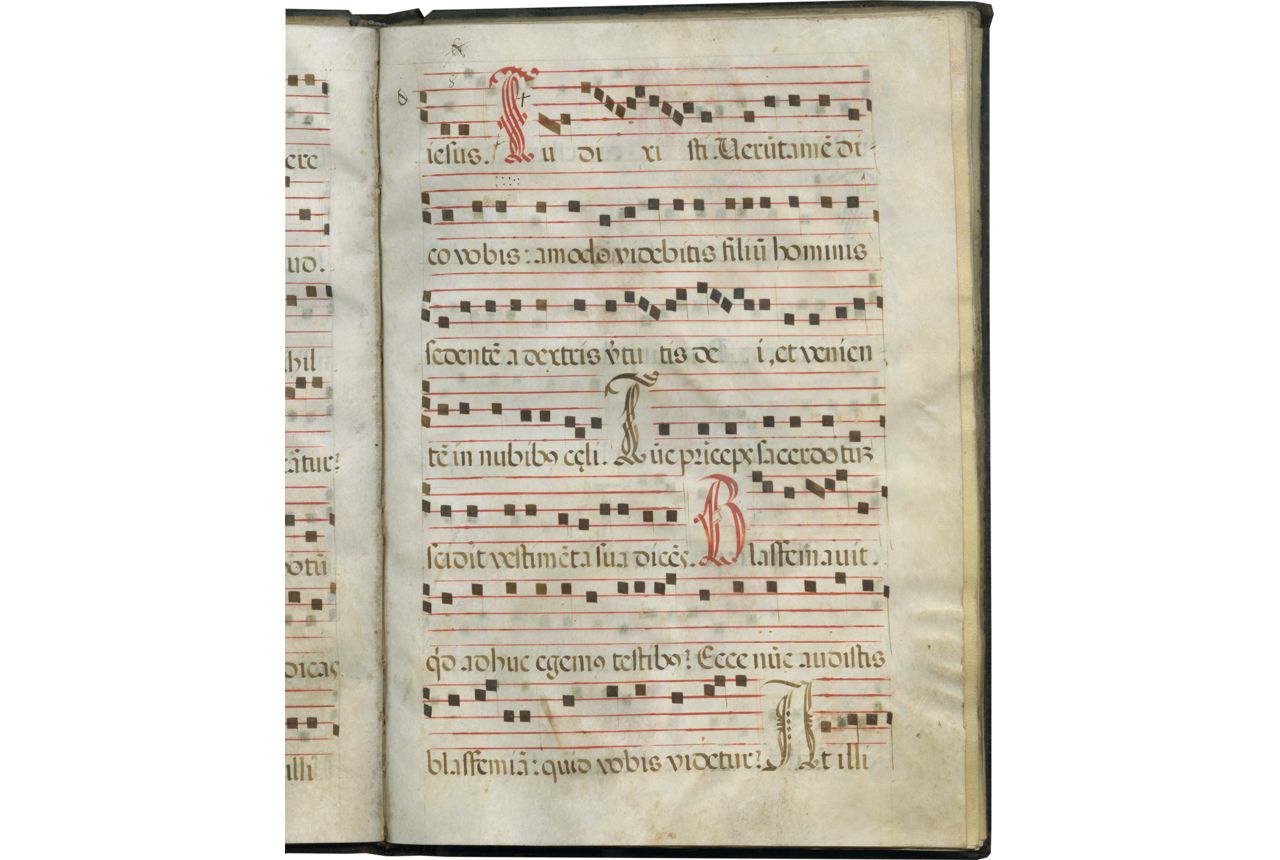 ere
iesus. Tu di xi sti. Uerūtamē di-
co vobis : amodo videbitis filiū hominis
sedentē a dextris v̓tu tis de i, et venien
hil
tē in nubibꝯ cęli. Tūc prīceps sacerdotuꝫ
scidit vestimēta sua dicēs. Blassemauit.
otū
qd adhuc egemꝯ testibꝯ? Ecce nūc audistis
dicas
blassemiā : quid vobis videtur? At illi
illi